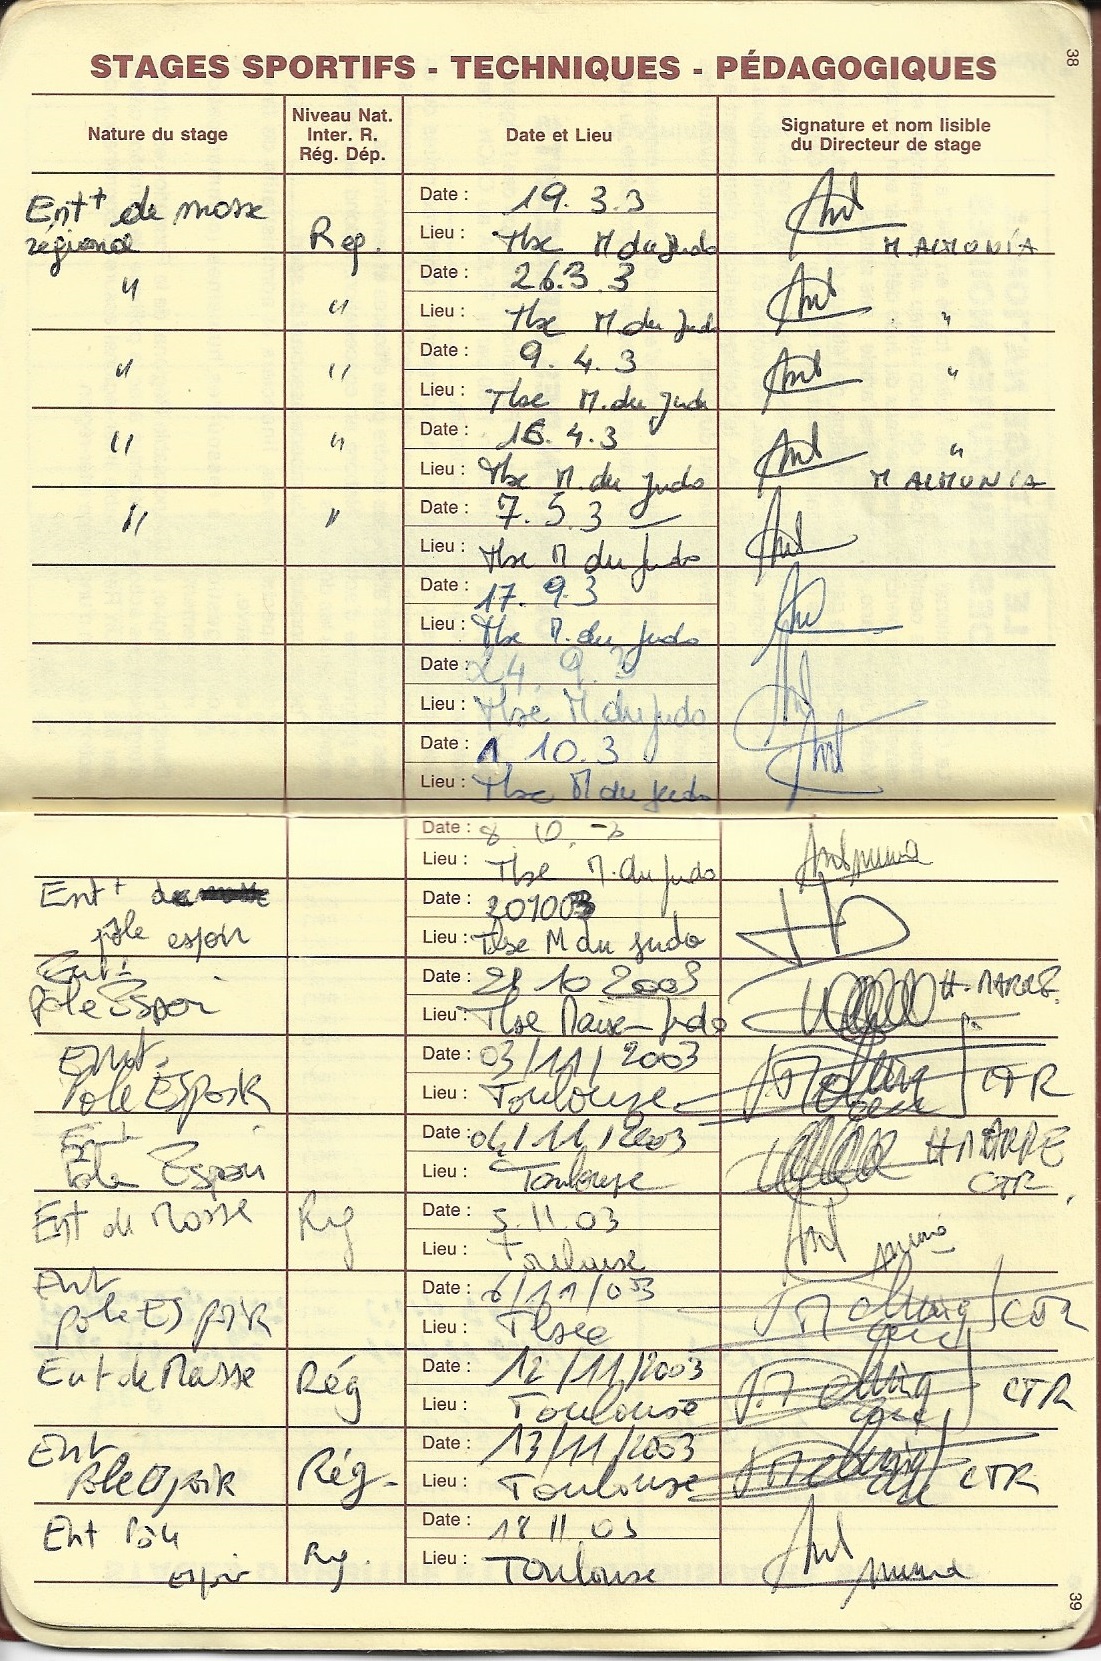 38
STAGES SPORTIFS - TECHNIQUES - PÉDAGOGIQUES
Nature du stage
Niveau Nat.
Inter. R.
Rég. Dép.
Date et Lieu
Signature et nom lisible
du Directeur de stage
Entt de masse
régional
Reg.
Date : 19.3.3
Lieu : Tlse M du Judo
M. ALMUNIA
" " Date : 26.3.3
Lieu : Tlse M. du Judo "
" " Date : 9.4.3
Lieu : Tlse M. du Judo "
" " Date : 16.4.3 "
Lieu : Tlse M. du Judo M ALMUNIA
" " Date : 7.5.3
Lieu : Tlse M du Judo
Date : 17.9.3
Lieu : Tlse M. du Judo
Date : 24.9.3
Lieu : Tlse M. du Judo
Date : 1.10.3
Lieu : Tlse M du Judo
Date : 8.10.3
Lieu : Tlse M. du Judo
Entt
pôle espoir
Date : 201003
Lieu : Tlse M du Judo
Ent.
Pole Espoir
Date : 10 2003
Lieu : Tlse Judo
H. MARRE
Pole ESpoiR
Date : 03/11/2003
Lieu : Toulouse
CTR
Pole Espoir
Date : 04/11/2003
Lieu : Toulouse
H MARRE
CTR
Ent de Masse Rég
Date : 5.11.03
Lieu : Toulouse
Ent
pole ESpoiR
Date : 6/11/03
Lieu :
CTR
Ent de Masse Rég
Date : 12/11/2003
Lieu : Toulouse
CTR
Ent
Pole Espoir Rég-
Date : 13/11/2003
Lieu : Toulouse
CTR
Ent Pôle
espoir Rég.
Date : 18 11 03
Lieu : Toulouse
39